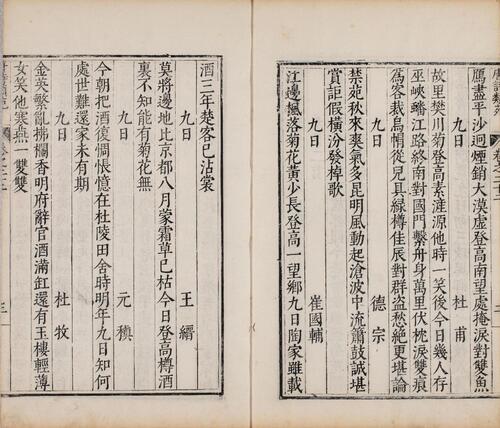 鴈盡平沙迥煙銷大漠虛登高處掩淚對雙魚
九日 杜甫
故里樊川菊登高素滻源他時一笑後今日幾人存
巫峽蟠江路終南對國門繫舟身萬里伏枕淚雙痕
為客裁烏帽從兒具綠樽佳辰對群盜愁絕更堪論
九日 德宗
禁苑秋來爽氣多昆明風動起滄波中流簫鼓誠堪
賞詎假橫汾發棹歌
九日 崔國輔
江邊楓落菊花黃少長登高一望鄉九日陶家雖載
酒三年楚客已沾裳
九日 王縉
莫將邊地比京都八月蒙霜草已枯今日登高樽酒
裏不知能有菊花無
九日 元稹
今朝把酒復惆悵憶在杜陵田舍時明年九日知何
處世難還家未有期
九日 杜牧
金英繁亂拂欄香明府辭官酒滿缸還有玉樓輕薄
女笑他寒燕一雙雙